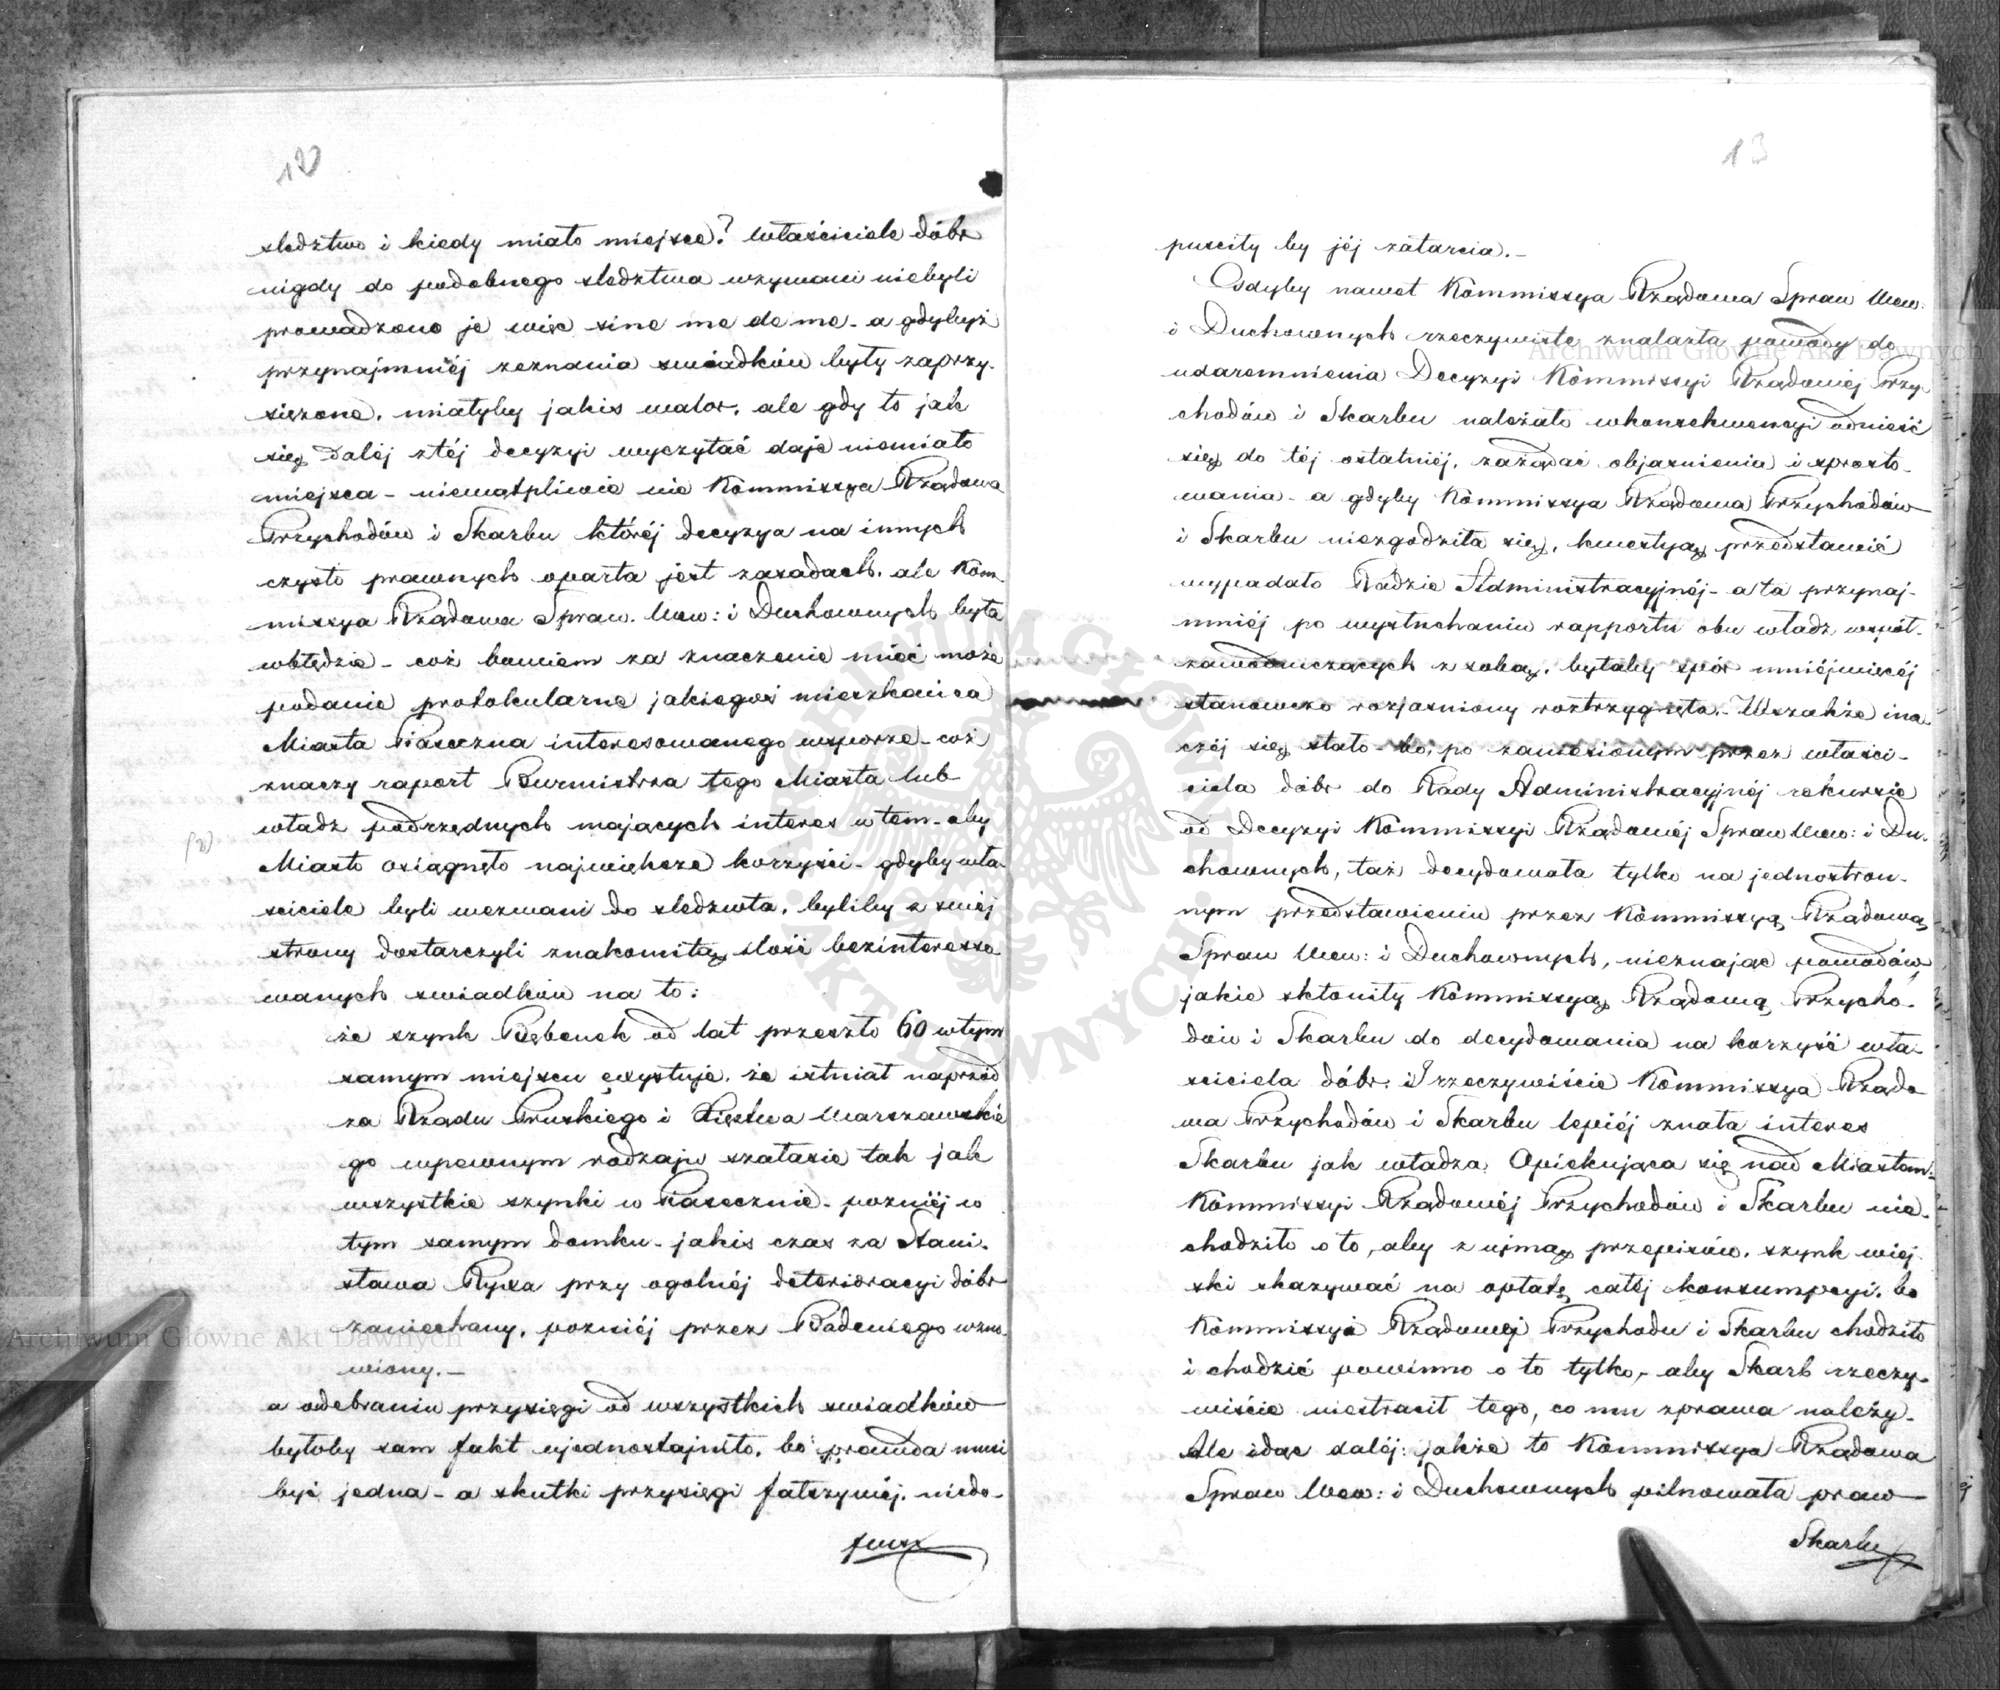 12
sledztwo i kiedy miało miejsce? Właściciele dóbr
nigdy do podobnego sledztwa wzywani niebyli
prowadzono je więc sine me de me - a gdybyż
przynajmniéj zeznania swiadków były zaprzy-
siężone, miałyby jakis walor, ale gdy to jak
się daléj ztéj decyzyi wyczytać daje niemiało
miejsca - niewątpliwie nie Kommissya Rządowa
Przychodów i Skarbu któréj decyzya na innych
czysto prawnych oparta jest zasadach, ale Kom-
missya Rządowa Spraw. Wew: i Duchownych była
wbłędzie - coż bowiem za znaczenie mieć może
podanie protokularne jakiegoś mieszkańca
Miasta Piaseczna interesowanego wsporze - coż
znaczy raport Burmistrza tego Miasta lub
władz podrzędnych mających interes w tem - aby
Miasto osiągnęło największe korzyści - gdyby wła-
sciciele byli wezwani do sledzwta, byliby z swéj
strony dostarczyli znakomitą ilość bezinteresso-
wanych swiadków na to:
że szynk Bębenek od lat przeszło 60 wtym
samym miejscu exystuje, że istniał naprzód
za Rządu Pruskiego i Xięstwa Warszawskie
go wpewnym rodzaju szałasie tak jak
wszystkie szynki w Piasecznie - pozniéj w
tym samym domku - jakis czas za Stani-
sława Ryxa przy ogolnéj deterioracyi dóbr
zaniechany, pozniéj przez Badeniego wzno-
wiony. -
a odebraniu przysięgi od wszystkich swiadków
byłoby sam fakt ujednostajniło, bo prawda musi
być jedna - a skutki przysięgi fałszywéj, niedo-
13
pusciły by jéj zatarcia. -
Gdyby nawet Kommissya Rządowa Spraw Wew:
i Duchownych rzeczywiste znalazła powody do
udaremnienia Decyzyi Kommissyi Rządowéj Przy-
chodów i Skarbu należało wkonsekwencyi odnieść
się do téj ostatniéj, zażądać objasnienia i sprosto-
wania - a gdyby Kommissya Rządowa Przychodów
i Skarbu niezgodziła się, kwestyą przedstawić
wypadało Radzie Administracyjnéj - a ta przynaj-
mniéj po wysłuchaniu rapportu obu władz współ-
zawodniczących z sobą, byłaby spór mniéjwięcéj
stanowczo rozjasniony roztrzygnęła. - Wszakże ina-
czéj się stało - bo, po zaniesionym przez właści-
ciela dóbr do Rady Administracyjnéj rekursie
od Decyzyi Kommissyi Rządowéj Spraw Wew: i Du-
chownych, taż decydowała tylko na jednostron-
nym przedstawieniu przez Kommissyą Rządową
Spraw Wew: i Duchownych, nieznając powodów,
jakie skłoniły Kommissyą Rządową Przycho-
dów i Skarbu do decydowania na korzyść wła-
sciciela dóbr. I rzeczywiście Kommissya Rządo
wa Przychodów i Skarbu lepiéj znała interes
Skarbu jak władza, Opiekująca się nad Miastem -
Kommissyi Rządowéj Przychodów i Skarbu nie-
chodziło o to, aby z ujmą przepisów, szynk wiej-
ski skazywać na opłatę całéj konsumpcyi, bo
Kommissyi Rządowej Przychodu i Skarbu chodziło
i chodzić powinno o to tylko, - aby Skarb rzeczy-
wiście niestracił tego, co mu zprawa należy -
Ale idąc daléj: jakże to Kommissya Rządowa
Spraw Wew: i Duchownych pilnowała praw
Skarbu
Archiwum Główne Akt Dawnych
Archiwum Główne Akt Dawnych
ARCHIWUM GŁÓWNE AKT DAWNYCH